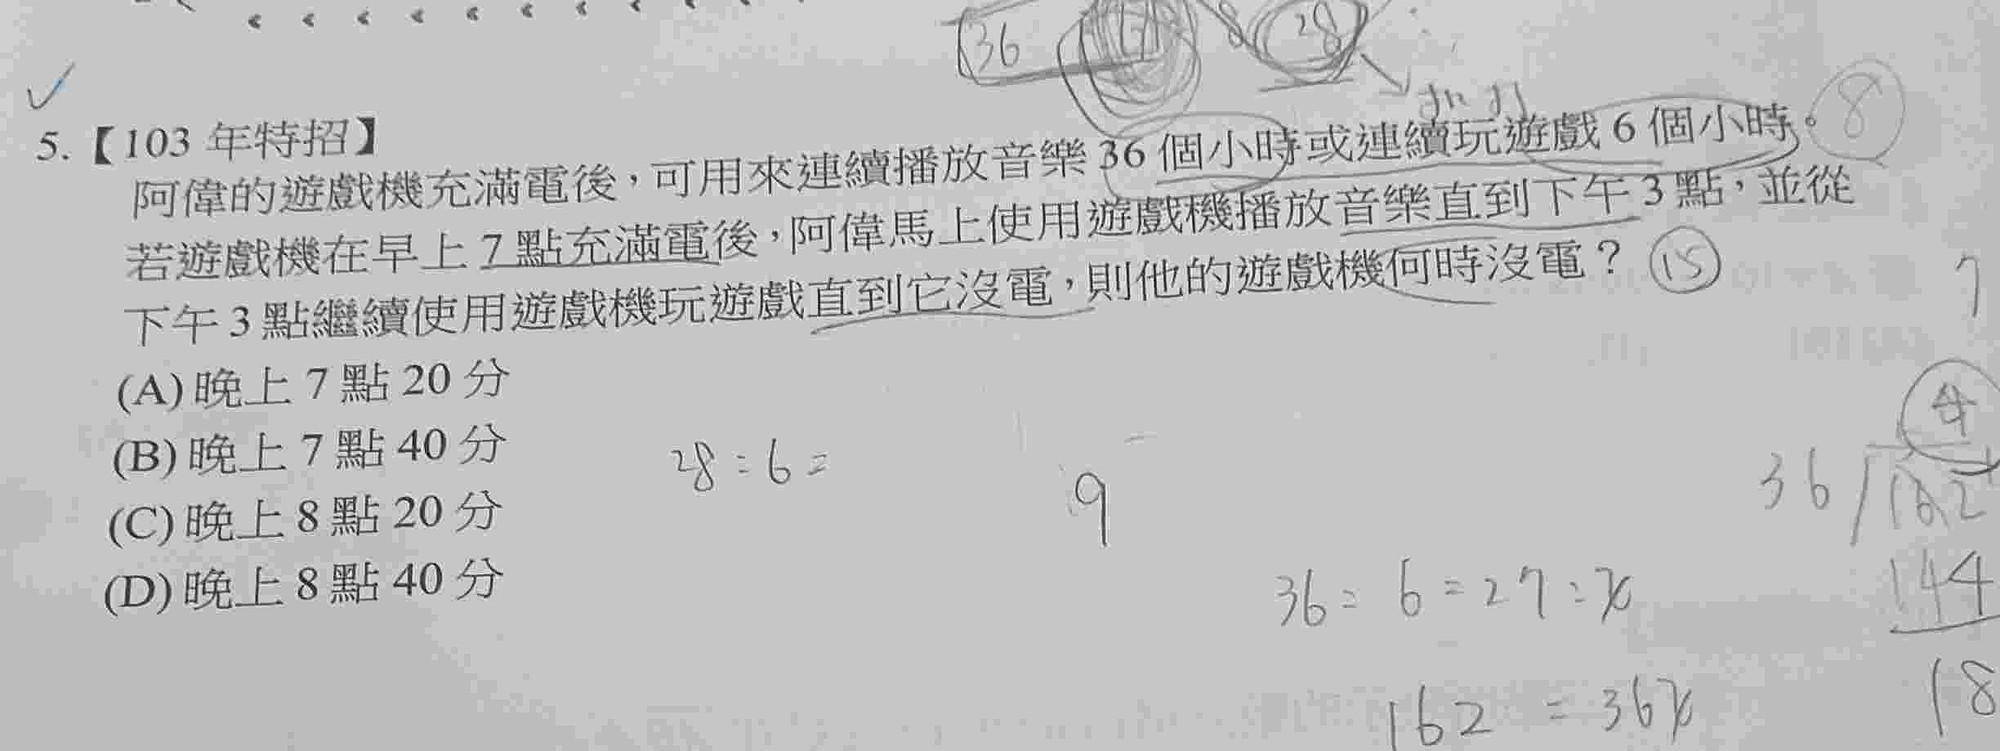 36 8 28
5.【103 年特招】
阿偉的遊戲機充滿電後，可用來連續播放音樂 36 個小時或連續玩遊戲 6 個小時。 8
若遊戲機在早上 7 點充滿電後，阿偉馬上使用遊戲機播放音樂直到下午 3 點，並從
下午 3 點繼續使用遊戲機玩遊戲直到它沒電，則他的遊戲機何時沒電？ 15
7
(A) 晚上 7 點 20 分
(B) 晚上 7 點 40 分
(C) 晚上 8 點 20 分
(D) 晚上 8 點 40 分
28 : 6 =
9
36 : 6 = 27 : x
162 = 36x
4
36 162
144
18